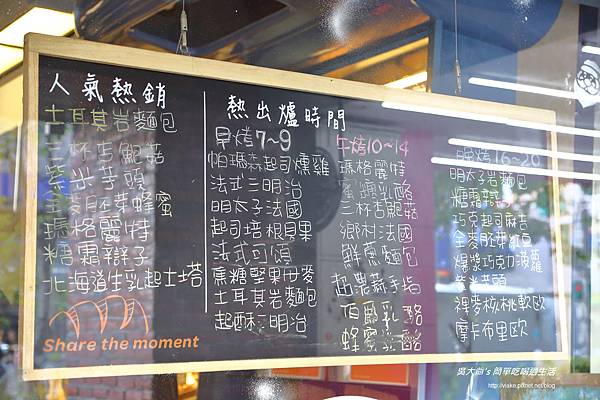 人氣熱銷
土耳其岩麵包
三杯杏鮑菇
紫米芋頭
全麥胚芽蜂蜜
瑪格麗特
糖霜辮子
北海道生乳起士塔
Share the moment
熱出爐時間
早烤7~9
帕瑪森起司燻雞
法式三明治
明太子法國
起司培根貝果
法式可頌
蕉糖堅果丹麥
土耳其岩麵包
起酥三明治
午烤10~14
瑪格麗特
蜜釀乳酪
三杯杏鮑菇
鄉村法國
鮮蔥麵包
起農蒜手指
伯爵乳酪
蜂蜜乳酪
晚烤16~20
明太子岩麵包
糖霜辮子
巧克起司麻吉
全麥胚芽紅豆
爆漿巧克力菠蘿
紫米芋頭
裸麥核桃軟歐
摩卡布里歐
吳大向's 簡單吃喝過生活
http://viake.pixnet.net/blog